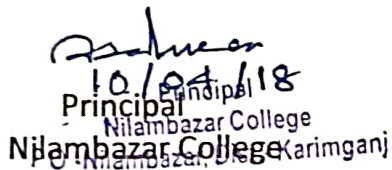 10/04/18
Principal
Principal
Nilambazar College
Nilambazar College
Nilambazar, Dist. Karimganj